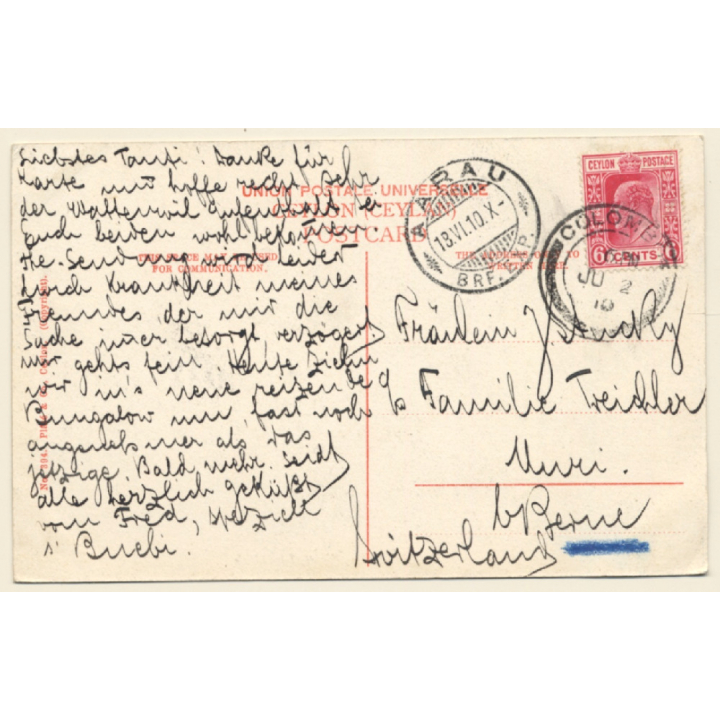 Liebstes Tanti! Danke für
Karte und hoffe recht sehr
der Wattenwil Aufenthalt
Euch beiden wohl bekommen.
The-Sendung wird leider
durch Krankheit meines
Freundes der mir die
Sache immer besorgt verzögert
mir gehts fein. Heute ziehn
wir in's neue reizende
Bungalow nun fast noch
angenehmer als das
jetzige. Bald mehr. Seid
alle herzlich geküßt
vom Fred, speziell
s' Buebi.
UNION POSTALE UNIVERSELLE
CEYLON (CEYLAN)
POSTCARD
FOR COMMUNICATION.
AARAU
18.VI.10.X-
BRF.
CEYLON POSTAGE
6 CENTS 6
COLOMBO
JU 2
10
Fräulein J.
c/o Familie Treichler
Muri.
b/Berne
Switzerland